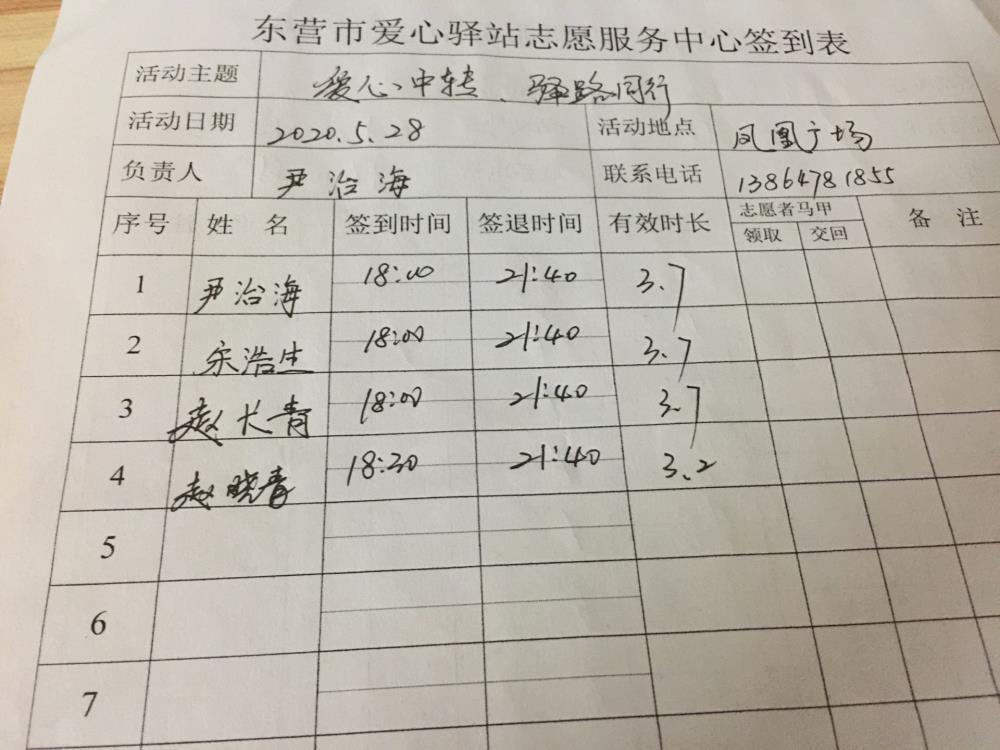 东营市爱心驿站志愿服务中心签到表
活动主题 爱心中转、驿路同行
活动日期 2020.5.28 活动地点 凤凰广场
负责人 尹治海 联系电话 13864781855
序号 姓名 签到时间 签退时间 有效时长 志愿者马甲 备注
领取 交回
1 尹治海 18:00 21:40 3.7
2 宋浩生 18:00 21:40 3.7
3 赵长青 18:00 21:40 3.7
4 赵晓青 18:30 21:40 3.2
5
6
7